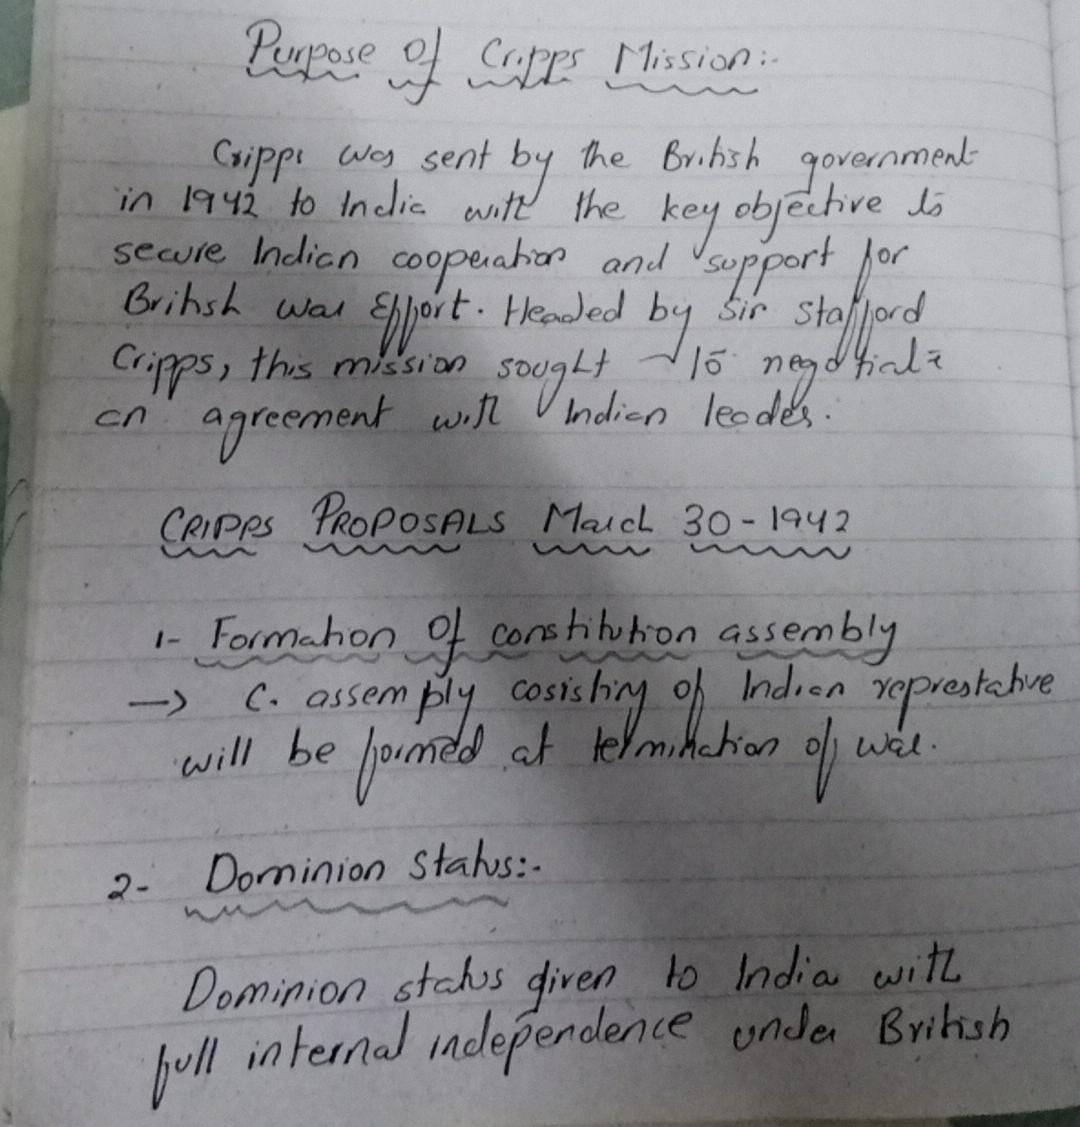 Purpose Of Cripps Mission:-
Cripps was sent by the British government
in 1942 to India with the key objective to
secure Indian cooperation and support for
British war Effort. Headed by Sir Stafford
Cripps, this mission sought to negotiate
an agreement with Indian leades.
CRIPPS PROPOSALS March 30-1942
1- Formation Of constitution assembly
→ C. assembly cosisting of Indian represtative
will be formed at termination of war.
2- Dominion Status:-
Dominion status given to India with
full internal independence under British